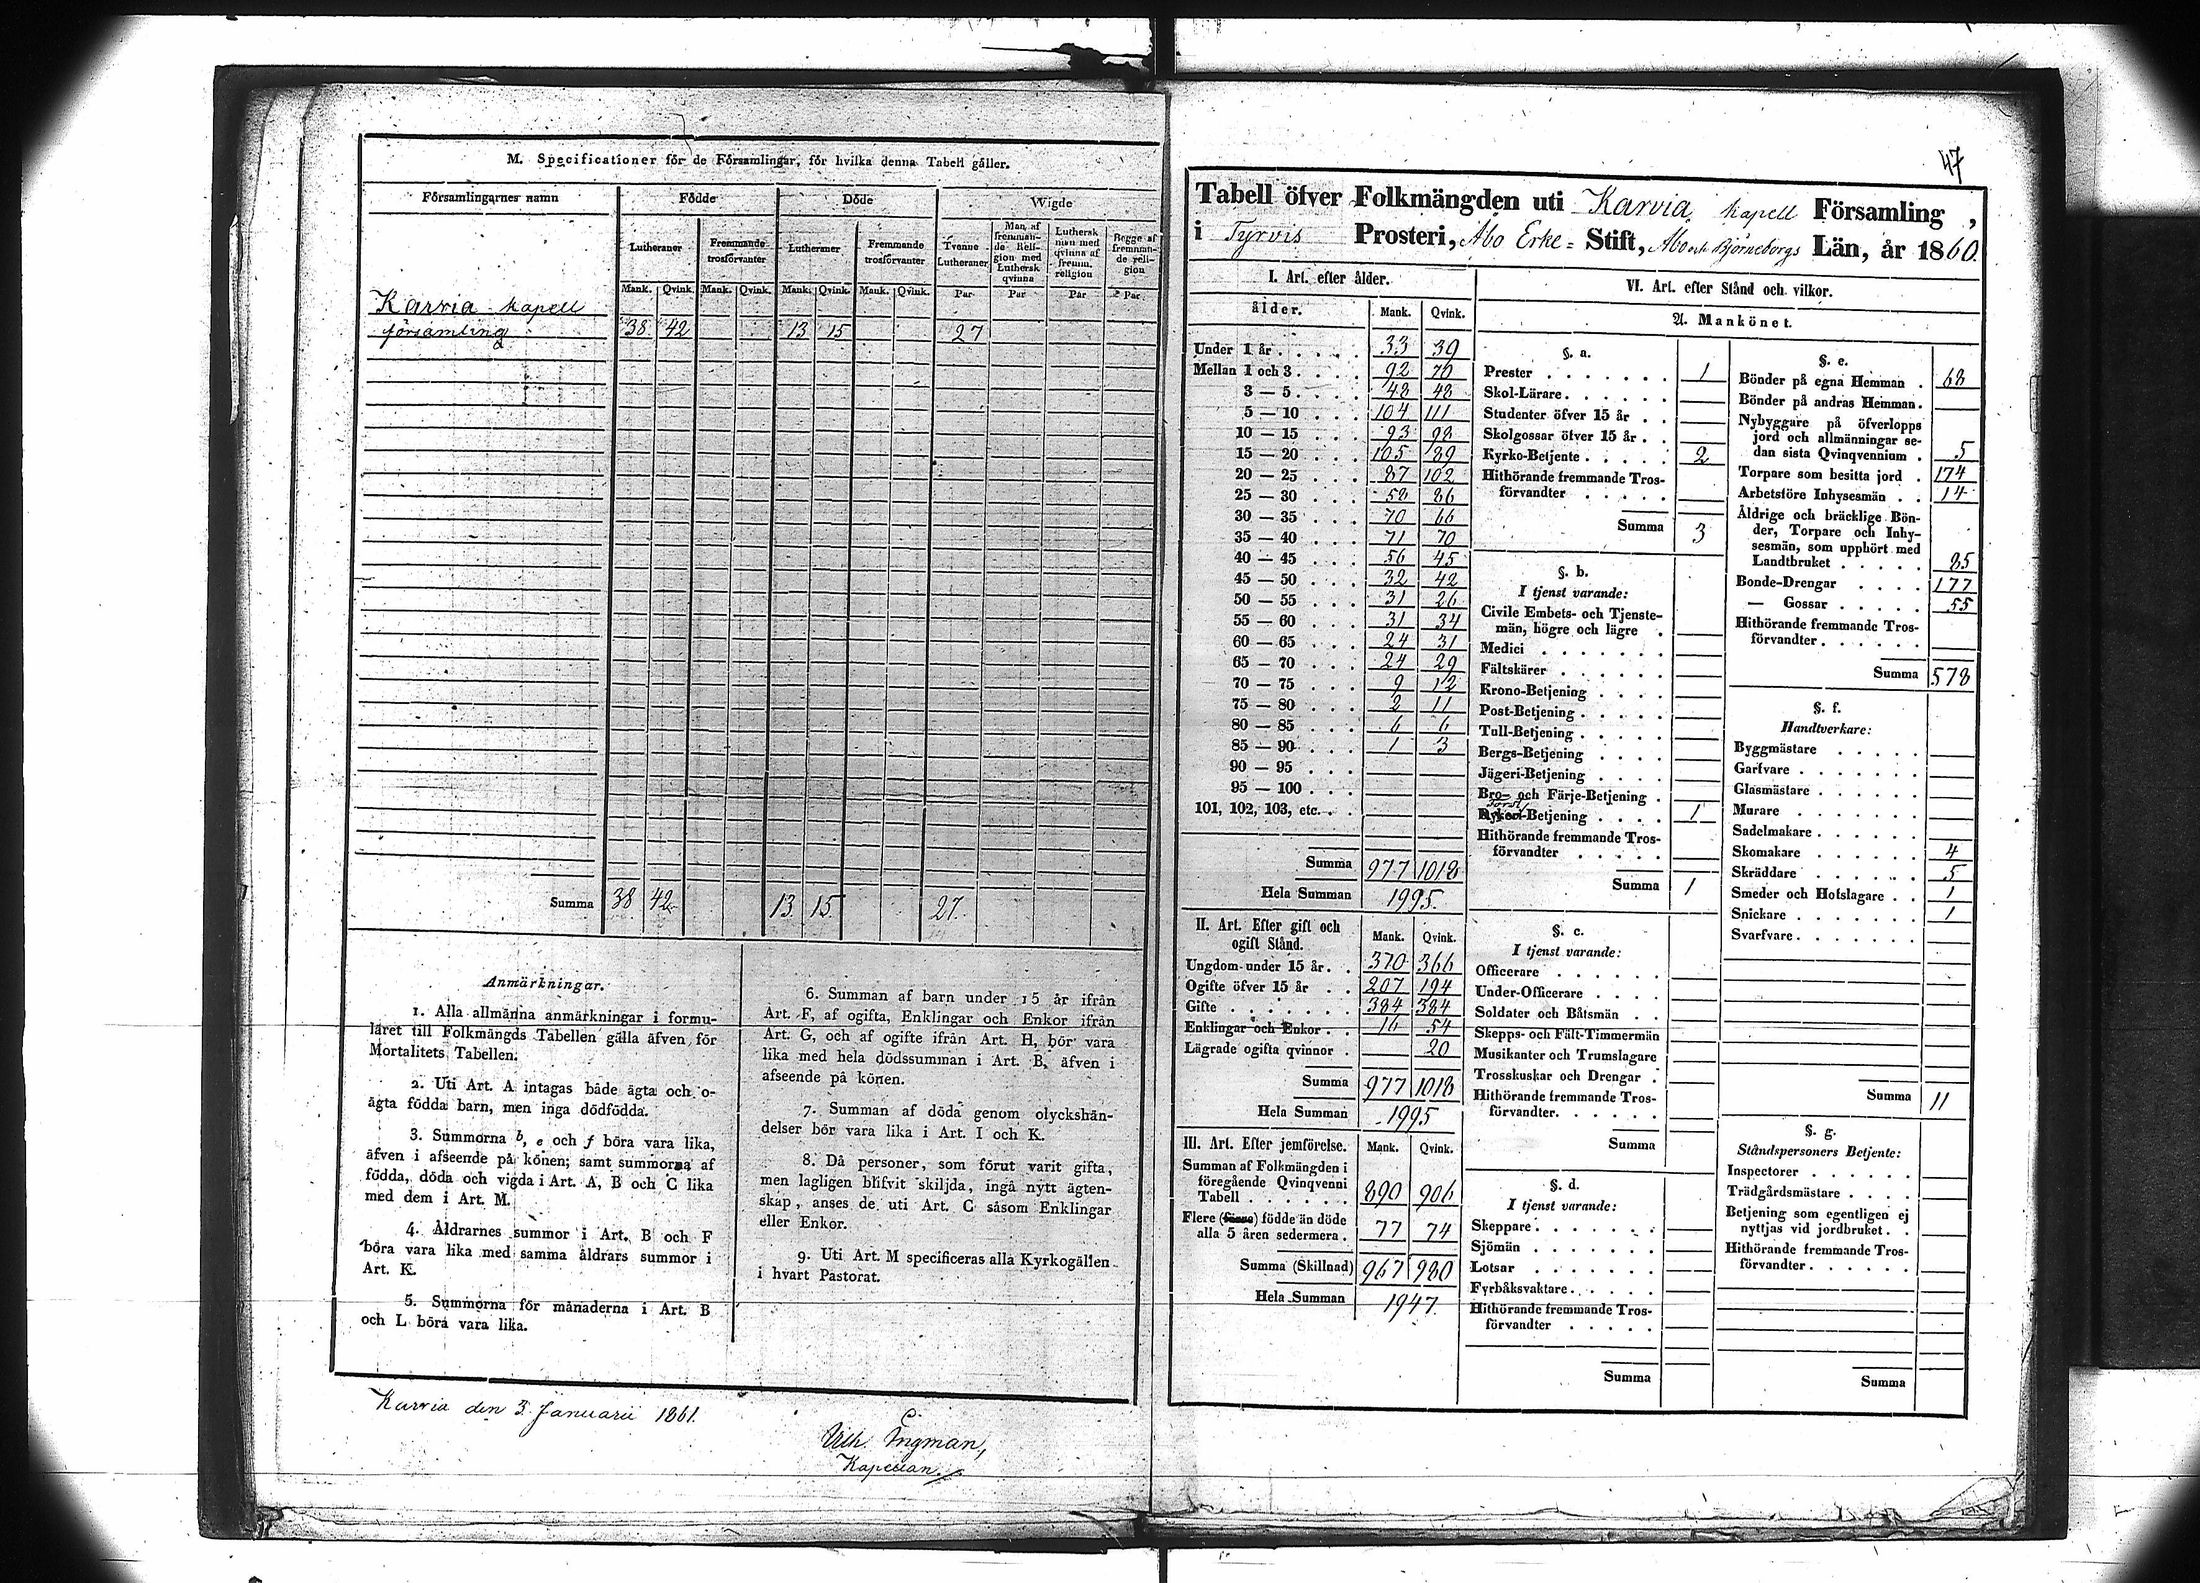 M. Specificationer för de Församlingar, för hvilka denna Tabell gäller.
Församlingarnes namn
Födde
Döde
Wigde
Lutheraner
Fremmande trosförvanter
Lutheraner
Fremmande trosförvanter
Tvenne Lutheraner
Man af fremmande Religion med Luthersk qvinna
Luthersk man med qvinna af fremm. religion
Begge af fremmande religion
Mank. Qvink. Mank. Qvink. Mank. Qvink. Mank. Qvink. Par Par Par Par
Karvia kapell
församling 38 42 13 15 27
Summa 38 42 13 15 27
Anmärkningar.
1. Alla allmänna anmärkningar i formu-
läret till Folkmängds Tabellen gälla äfven för
Mortalitets Tabellen.
2. Uti Art. A intagas både ägta och o-
ägta födda barn, men inga dödfödda.
3. Summorna b, e och f böra vara lika,
äfven i afseende på könen; samt summorna af
födda, döda och vigda i Art. A, B och C lika
med dem i Art. M.
4. Åldrarnes summor i Art. B och F
böra vara lika med samma åldrars summor i
Art. K.
5. Summorna för månaderna i Art. B
och L böra vara lika.
6. Summan af barn under 15 år ifrån
Art. F, af ogifta, Enklingar och Enkor ifrån
Art. G, och af ogifte ifrån Art. H, bör vara
lika med hela dödssumman i Art. B, äfven i
afseende på könen.
7. Summan af döda genom olyckshän-
delser bör vara lika i Art. I och K.
8. Då personer, som förut varit gifta,
men lagligen blifvit skiljda, ingå nytt ägten-
skap, anses de uti Art. C såsom Enklingar
eller Enkor.
9. Uti Art. M specificeras alla Kyrkogällen
i hvart Pastorat.
Karvia den 3 Januarii 1861.
Vilh. Ingman,
Kapellan.
47
Tabell öfver Folkmängden uti Karvia kapell Församling,
i Tyrvis Prosteri, Åbo Erke- Stift, Åbo och Björneborgs Län, år 1860.
I. Art. efter ålder.
ålder. Mank. Qvink.
Under 1 år 33 39
Mellan 1 och 3 92 70
3 — 5 48 48
5 — 10 104 111
10 — 15 93 98
15 — 20 105 89
20 — 25 87 102
25 — 30 58 86
30 — 35 70 66
35 — 40 71 70
40 — 45 56 45
45 — 50 32 42
50 — 55 31 26
55 — 60 31 34
60 — 65 24 31
65 — 70 24 29
70 — 75 9 12
75 — 80 2 11
80 — 85 6 6
85 — 90 1 3
90 — 95
95 — 100
101, 102, 103, etc.
Summa 977 1018
Hela Summan 1995.
II. Art. Efter gift och
ogift Stånd. Mank. Qvink.
Ungdom under 15 år 370 366
Ogifte öfver 15 år 207 194
Gifte 384 384
Enklingar och Enkor 16 54
Lägrade ogifta qvinnor 20
Summa 977 1018
Hela Summan 1995
III. Art. Efter jemförelse. Mank. Qvink.
Summan af Folkmängden i
föregående Qvinqvenni
Tabell 890 906
Flere (färre) födde än döde
alla 5 åren sedermera 77 74
Summa (Skillnad) 967 980
Hela Summan 1947.
VI. Art. efter Stånd och vilkor.
A. Mankönet.
§. a.
Prester 1
Skol-Lärare
Studenter öfver 15 år
Skolgossar öfver 15 år
Kyrko-Betjente 2
Hithörande fremmande Tros-
förvandter
Summa 3
§. b.
I tjenst varande:
Civile Embets- och Tjenste-
män, högre och lägre
Medici
Fältskärer
Krono-Betjening
Post-Betjening
Tull-Betjening
Bergs-Betjening
Jägeri-Betjening
Bro- och Färje-Betjening
Forst
-Betjening 1
Hithörande fremmande Tros-
förvandter
Summa 1
§. c.
I tjenst varande:
Officerare
Under-Officerare
Soldater och Båtsmän
Skepps- och Fält-Timmermän
Musikanter och Trumslagare
Trosskuskar och Drengar
Hithörande fremmande Tros-
förvandter
Summa
§. d.
I tjenst varande:
Skeppare
Sjömän
Lotsar
Fyrbåksvaktare
Hithörande fremmande Tros-
förvandter
Summa
§. e.
Bönder på egna Hemman 68
Bönder på andras Hemman
Nybyggare på öfverlopps
jord och allmänningar se-
dan sista Qvinqvennium 5
Torpare som besitta jord 174
Arbetsföre Inhysesmän 14
Åldrige och bräcklige Bön-
der, Torpare och Inhy-
sesmän, som upphört med
Landtbruket 85
Bonde-Drengar 177
— Gossar 55
Hithörande fremmande Tros-
förvandter
Summa 578
§. f.
Handtverkare:
Byggmästare
Garfvare
Glasmästare
Murare
Sadelmakare
Skomakare 4
Skräddare 5
Smeder och Hofslagare 1
Snickare 1
Svarfvare
Summa 11
§. g.
Ståndspersoners Betjente:
Inspectorer
Trädgårdsmästare
Betjening som egentligen ej
nyttjas vid jordbruket
Hithörande fremmande Tros-
förvandter
Summa